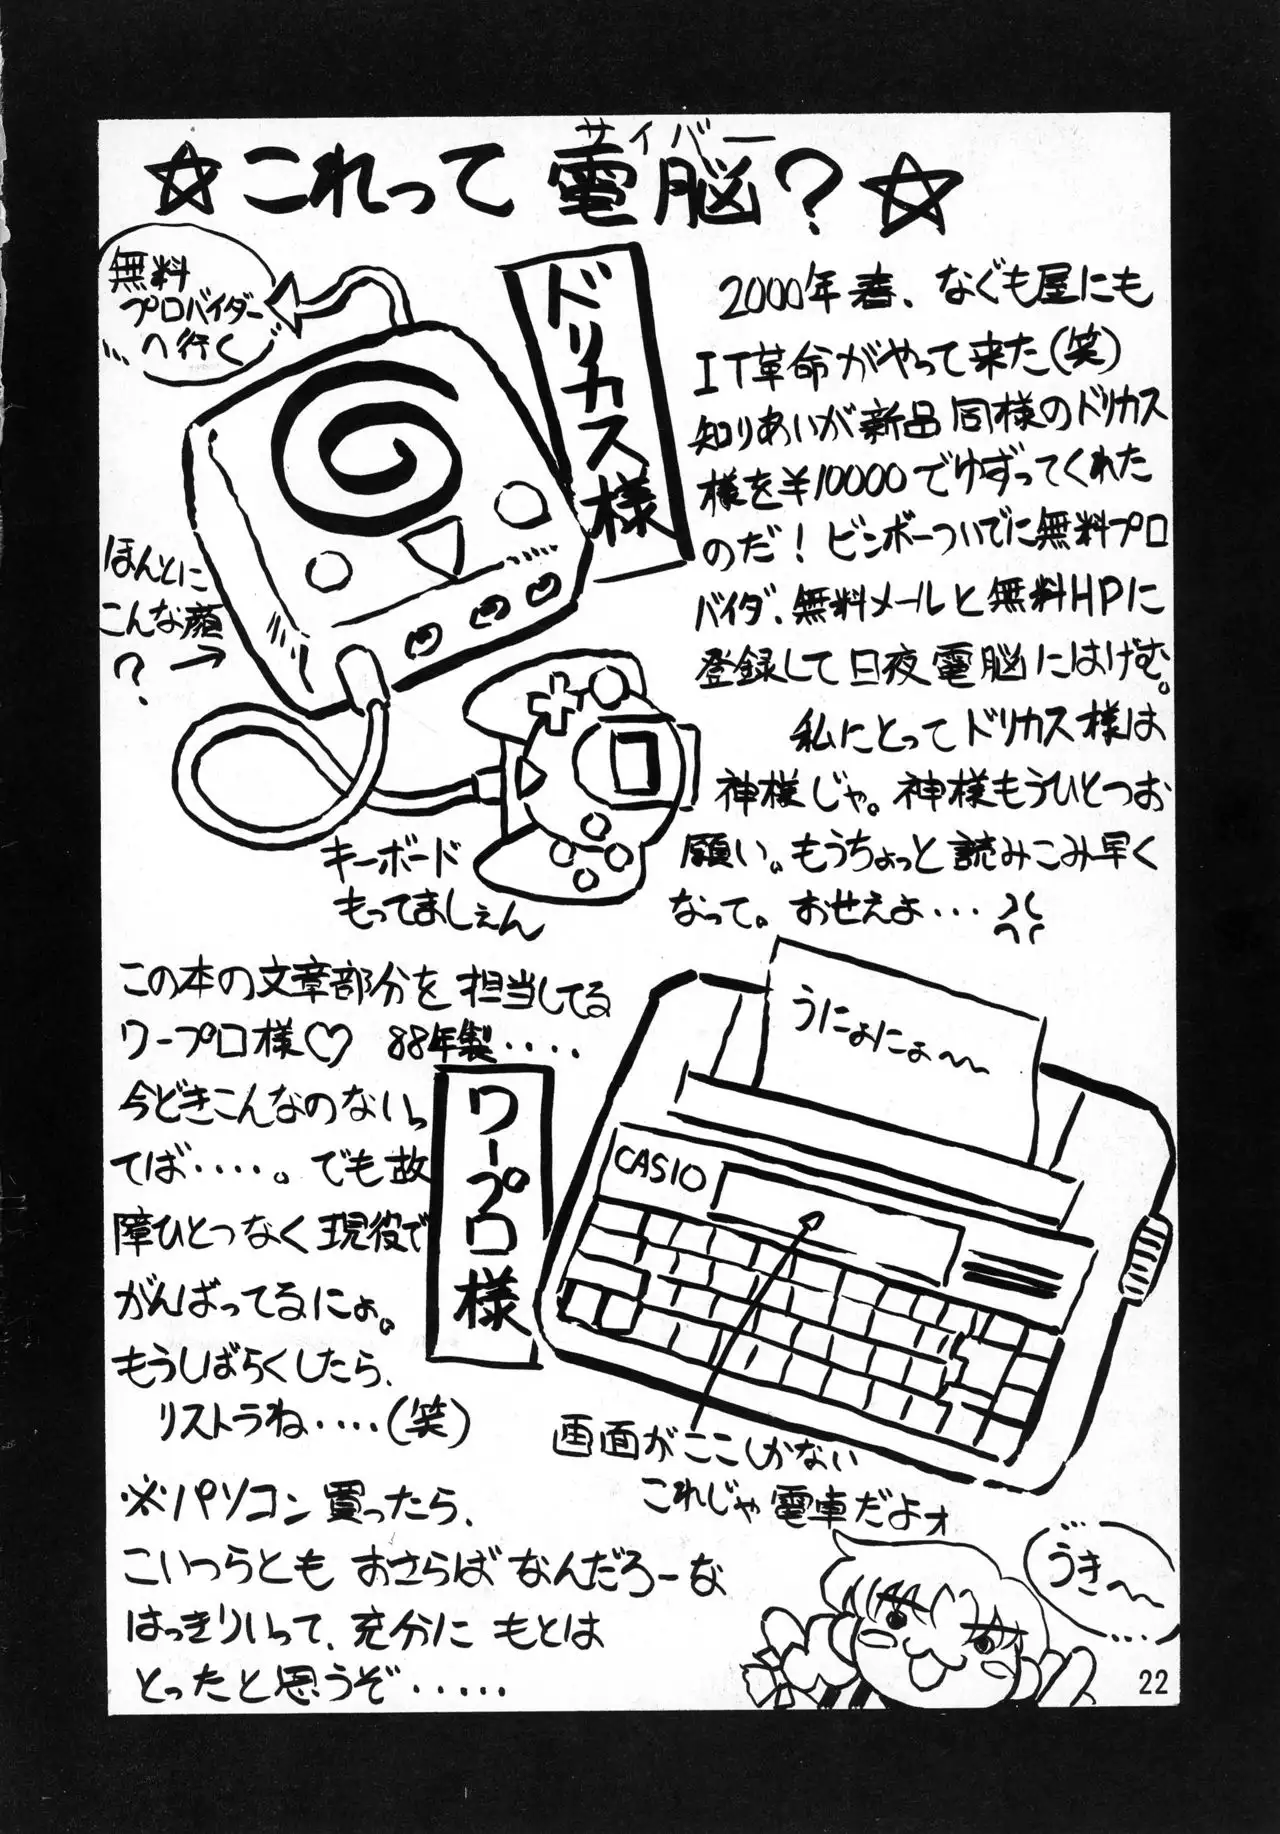 サイバー
☆これって電脳?☆
無料
プロバイダー
へ行く
ドリカス様
2000年春、なぐも屋にも
IT革命がやって来た(笑)
知りあいが新品同様のドリカス
様を¥10000でゆずってくれた
のだ!ビンボーついでに無料プロ
バイダ、無料メールと無料HPに
登録して日夜電脳にはげむ。
私にとってドリカス様は
神様じゃ。神様もうひとつお
願い。もうちょっと読みこみ早く
なって。おせえよ・・・
ほんとに
こんな顔
?→
キーボード
もってましぇん
この本の文章部分を担当してる
ワープロ様♡ 88年製・・・・
今どきこんなのないっ
てば・・・・。でも故
障ひとつなく現役で
がんばってるにょ。
もうしばらくしたら、
リストラね・・・・(笑)
ワープロ様
うにょにょ〜
CASIO
画面がここしかない
これじゃ電車だよォ
※パソコン買ったら、
こいつらとも おさらばなんだろーな
はっきりいって、充分に もとは
とったと思うぞ・・・・・
うき〜
22